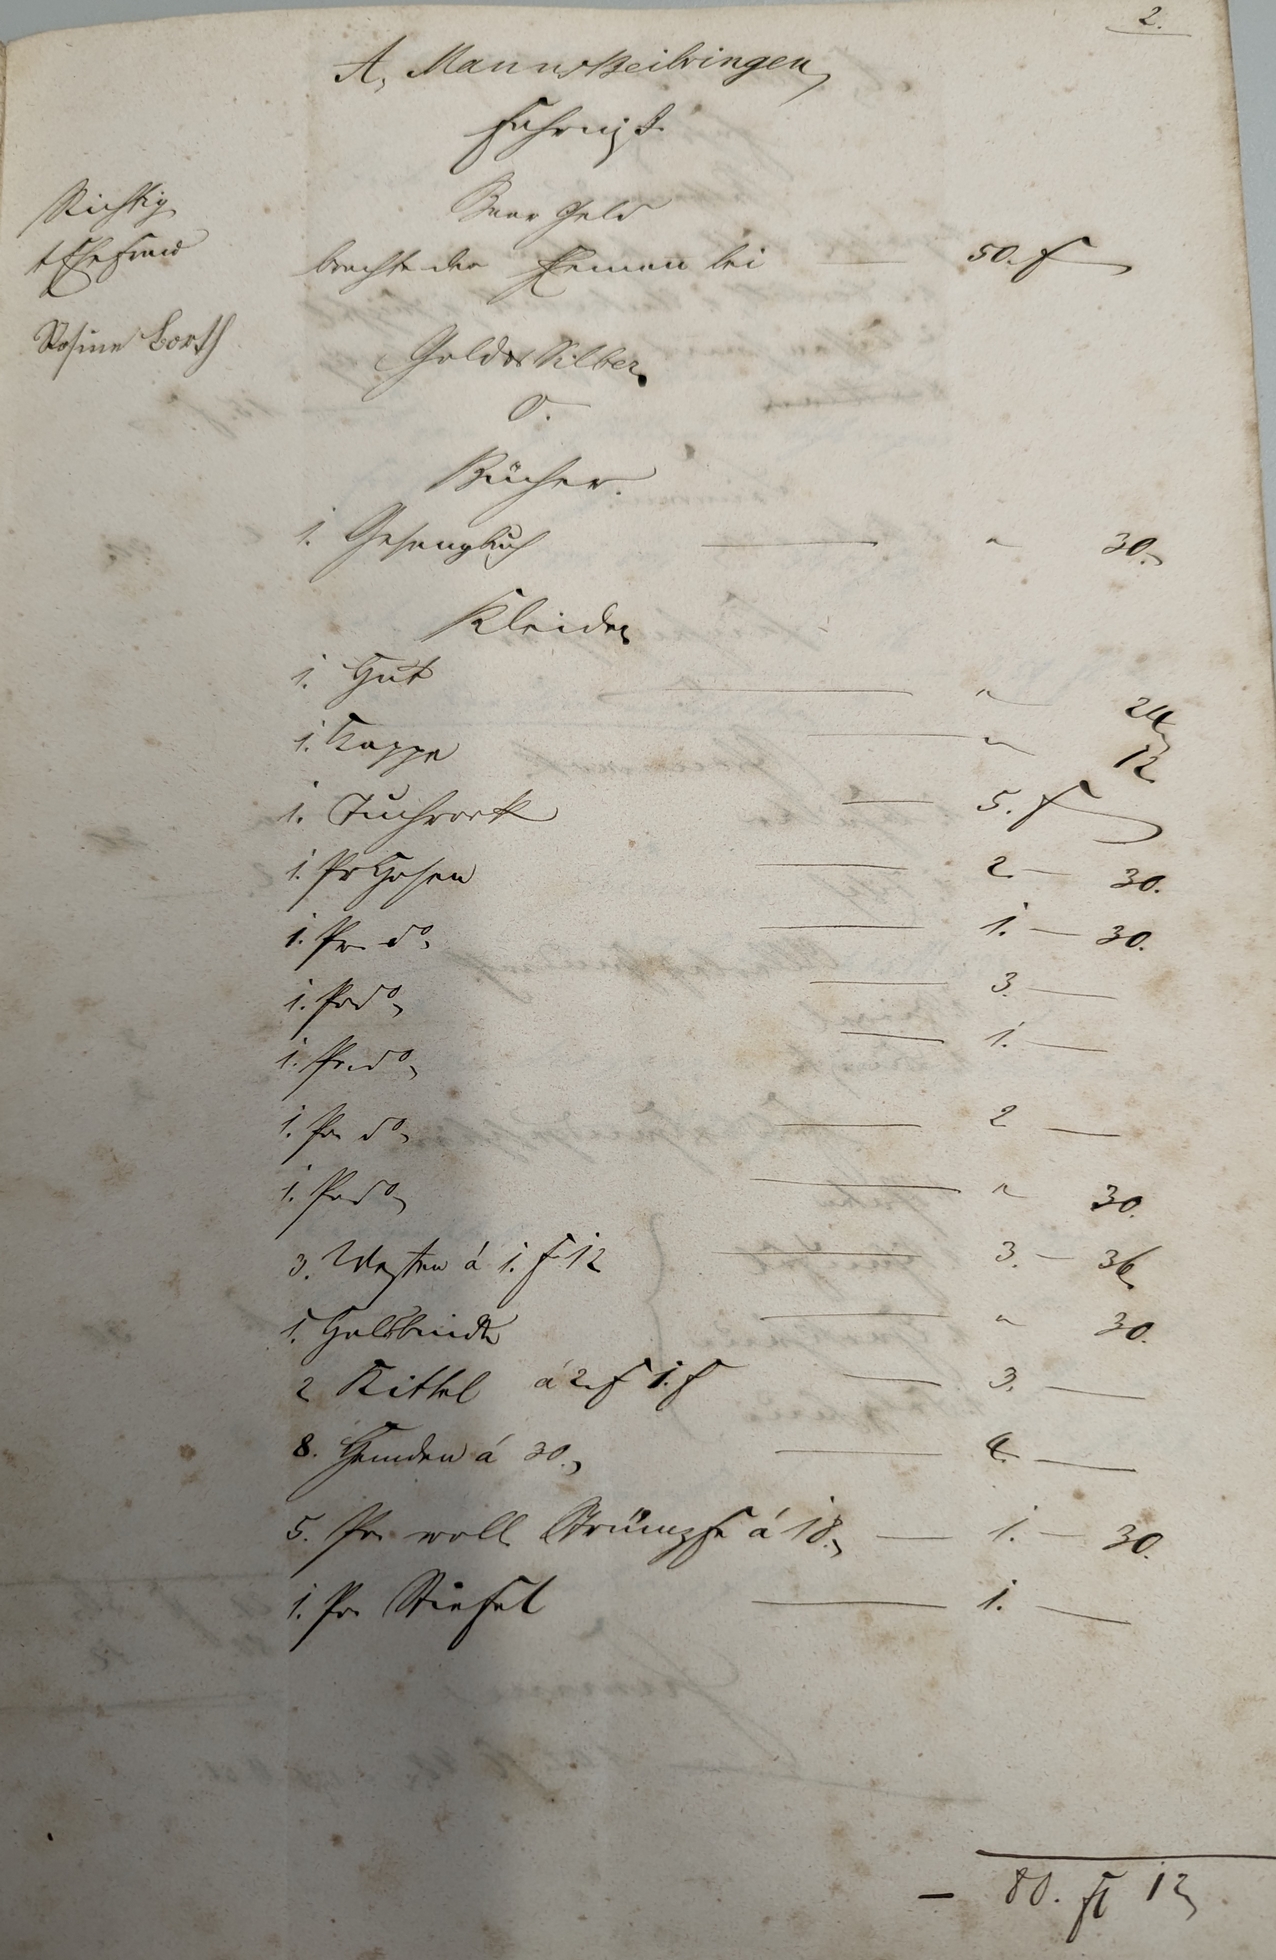 2.
A, Manns Beibringen,
Fahrniß.
Richtig
t. Ehefrau
Rosine Borth
Baar Geld
brachte der Eheman bei — 50. f
Gold & Silber
0.
Bücher.
1. Gesangbuch — " 30.
Kleider
1. Hut — " 24
1. Kappe — " 12
1. Tuchrock — 5. f
1. Pr Hosen — 2. — 30.
1. Pr. do. — 1. — 30.
1. Pr do, — 3. —
1. Pr. do, — 1. —
1. Pr do, — 2 —
1. Pr do, — " 30.
3. Westen á 1. f 12 — 3. — 36
1. Halsbinde — " 30.
2 Kittel á 2. f 1. f — 3. —
8. Hemden á 30., — 4. —
5. Pr. woll. Strümpfe á 18., — 1. — 30.
1. Pr. Stiefel — 1. —
— 80. fl 12,